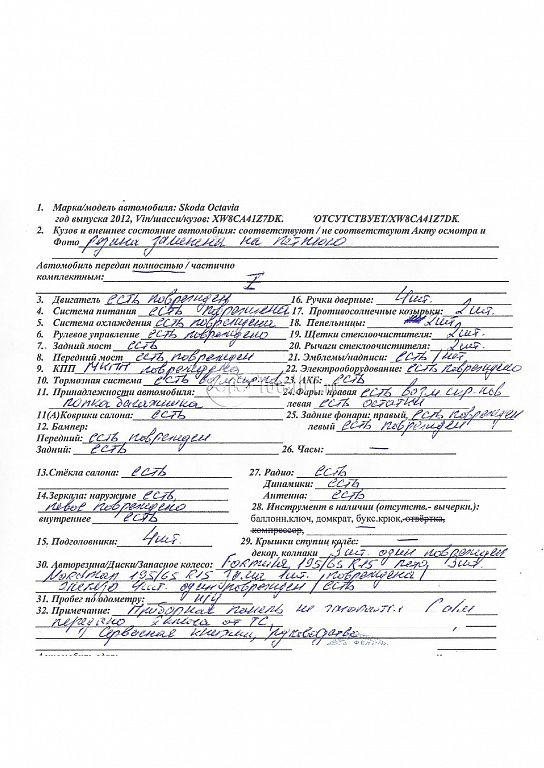 1. Марка/модель автомобиля: Skoda Octavia
год выпуска 2012, Vin/шасси/кузов: XW8CA41Z7DK. ОТСУТСТВУЕТ/XW8CA41Z7DK
2. Кузов и внешнее состояние автомобиля: соответствуют / не соответствуют Акту осмотра и
Фото резина заменена на
Автомобиль передан полностью / частично
комплектным:
3. Двигатель есть поврежден 16. Ручки дверные: 4 шт.
4. Система питания есть повреждена 17. Противосолнечные козырьки: 2 шт.
5. Система охлаждения есть повреждена 18. Пепельницы: 2 шт.
6. Рулевое управление есть повреждено 19. Щетки стеклоочистителя: 2 шт.
7. Задний мост есть 20. Рычаги стеклоочистителя: 2 шт.
8. Передний мост есть поврежден 21. Эмблемы/надписи: есть / нет
9. КПП МКПП повреждена 22. Электрооборудование: есть повреждено
10. Тормозная система есть 23. АКБ: есть
11. Принадлежности автомобиля: 24. Фары: правая есть
полка багажника левая есть остатки
11(А)Коврики салона: есть 25. Задние фонари: правый, есть поврежден
12. Бампер: левый есть поврежден
Передний: есть поврежден
Задний: есть 26. Часы: —
13. Стёкла салона: есть 27. Радио: есть
Динамики: есть
14. Зеркала: наружные есть, Антенна: есть
левое повреждено 28. Инструмент в наличии (отсутств.- вычеркн.):
внутреннее есть баллонн.ключ, домкрат, букс.крюк, отвёртка,
компрессор, —
15. Подголовники: 4 шт. 29. Крышки ступиц колёс: —
декор. колпаки 3 шт. один поврежден
30. Авторезина/Диски/Запасное колесо: 195/65 R15 3 шт.
195/65 R15 1 шт. повреждена
4 шт. один поврежден / есть
31. Пробег по одометру:
32. Примечание: Приборная панель не
передано от ТС,
Сервисная книжка, руководство